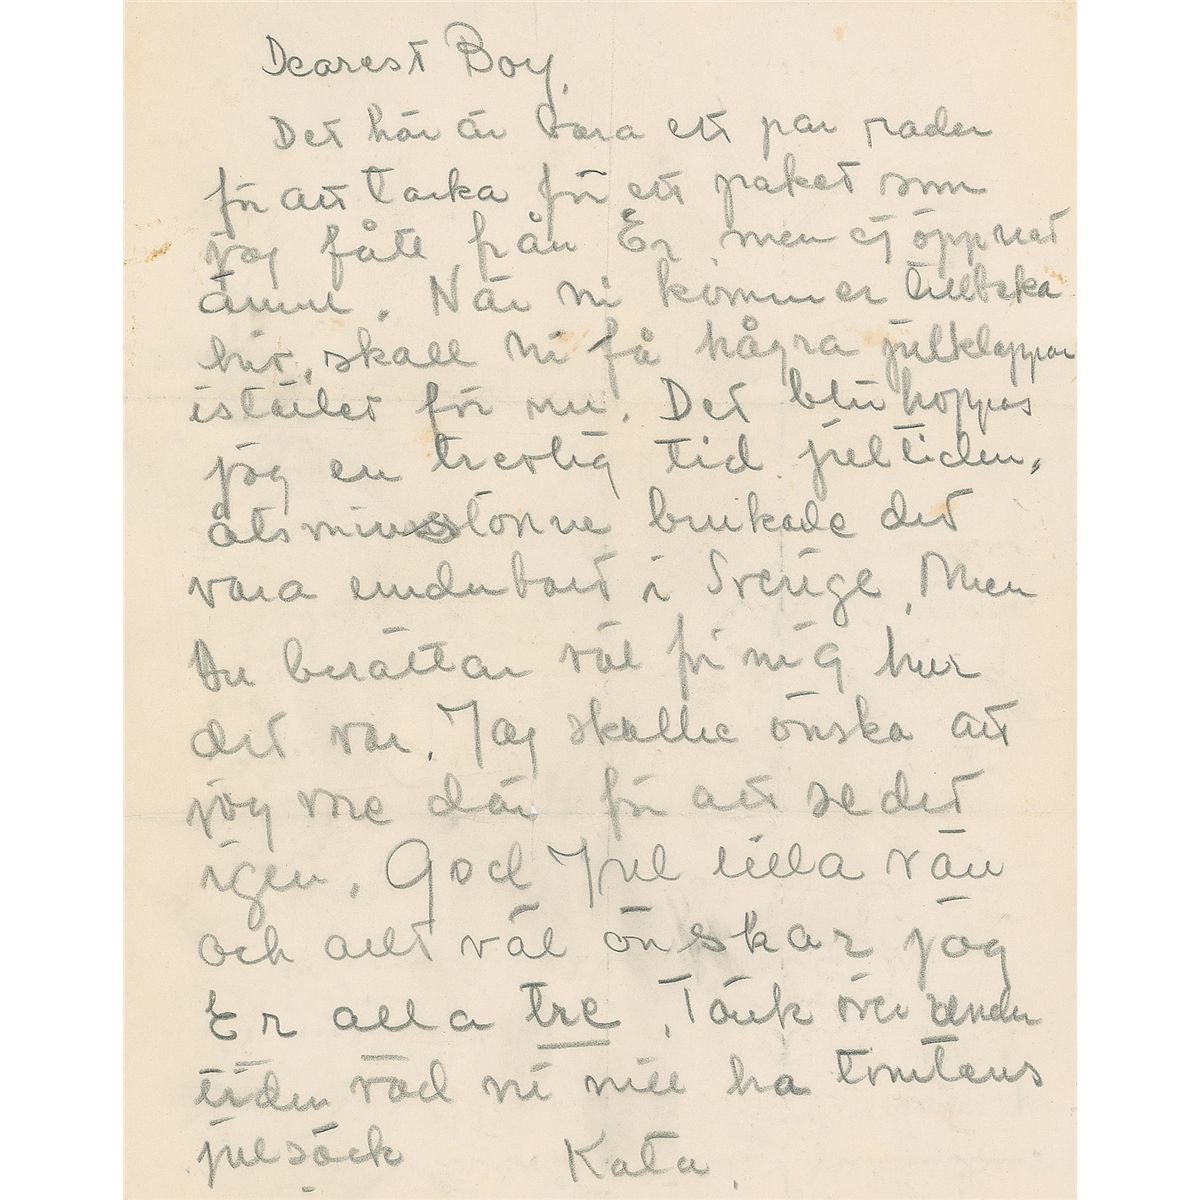 Dearest Boy,
Det här är bara ett par rader
för att tacka för ett paket som
jag fått från Er, men ej öppnat
ännu. När ni kommer tillbaka
hit, skall ni få några julklappar
istället för nu. Det blir hoppas
jag en trevlig tid jultiden,
åtsminstonne brukade det
vara underbart i Sverige. Men
Du berättar väl för mig hur
det var. Jag skulle önska att
jag vore där för att se det
igen. God Jul lilla vän
och allt väl önskar jag
Er alla tre. Tänk över under
tiden vad ni vill ha tomtens
julsäck Kata.